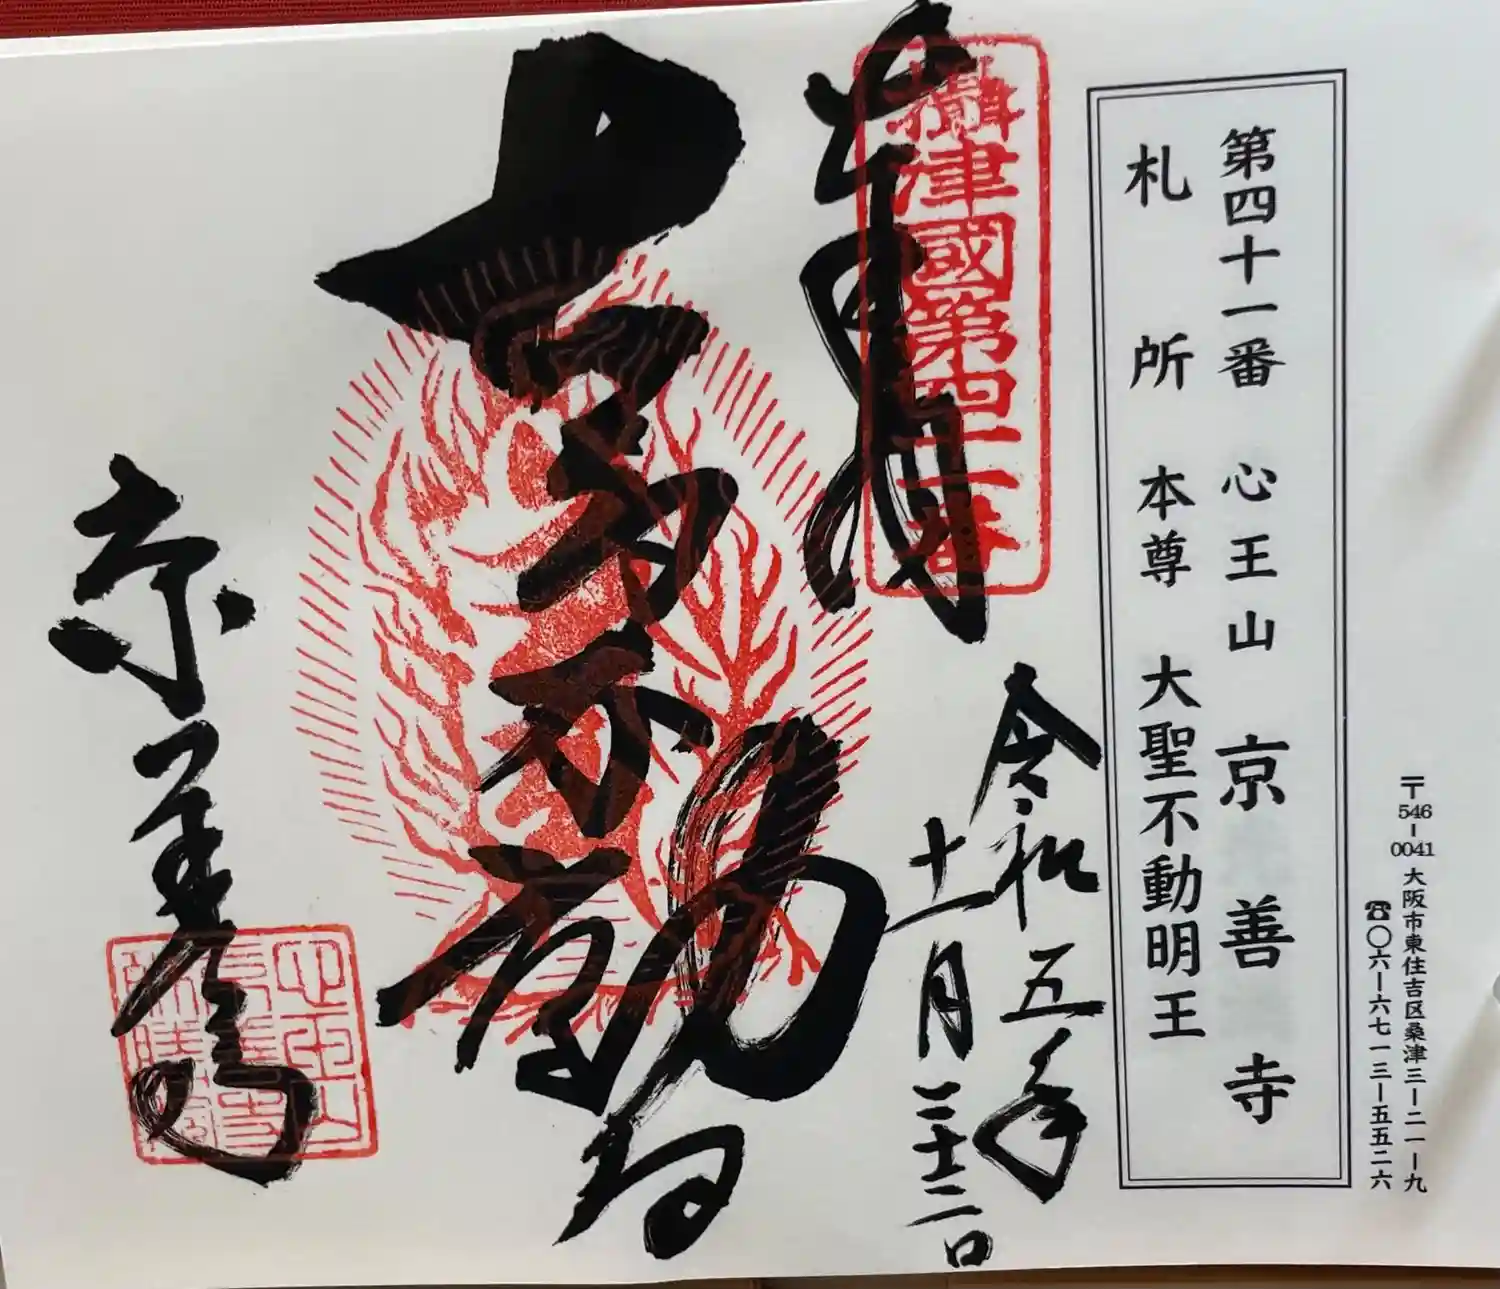 〒546-0041 大阪市東住吉区桑津三ー二一ー九
☎〇六ー六七一三ー五五二六
第四十一番 心王山 京善寺
札所 本尊 大聖不動明王
攝津國第四十一番
奉拝
令和五年
十一月二十二日
不動
京善寺
心王山